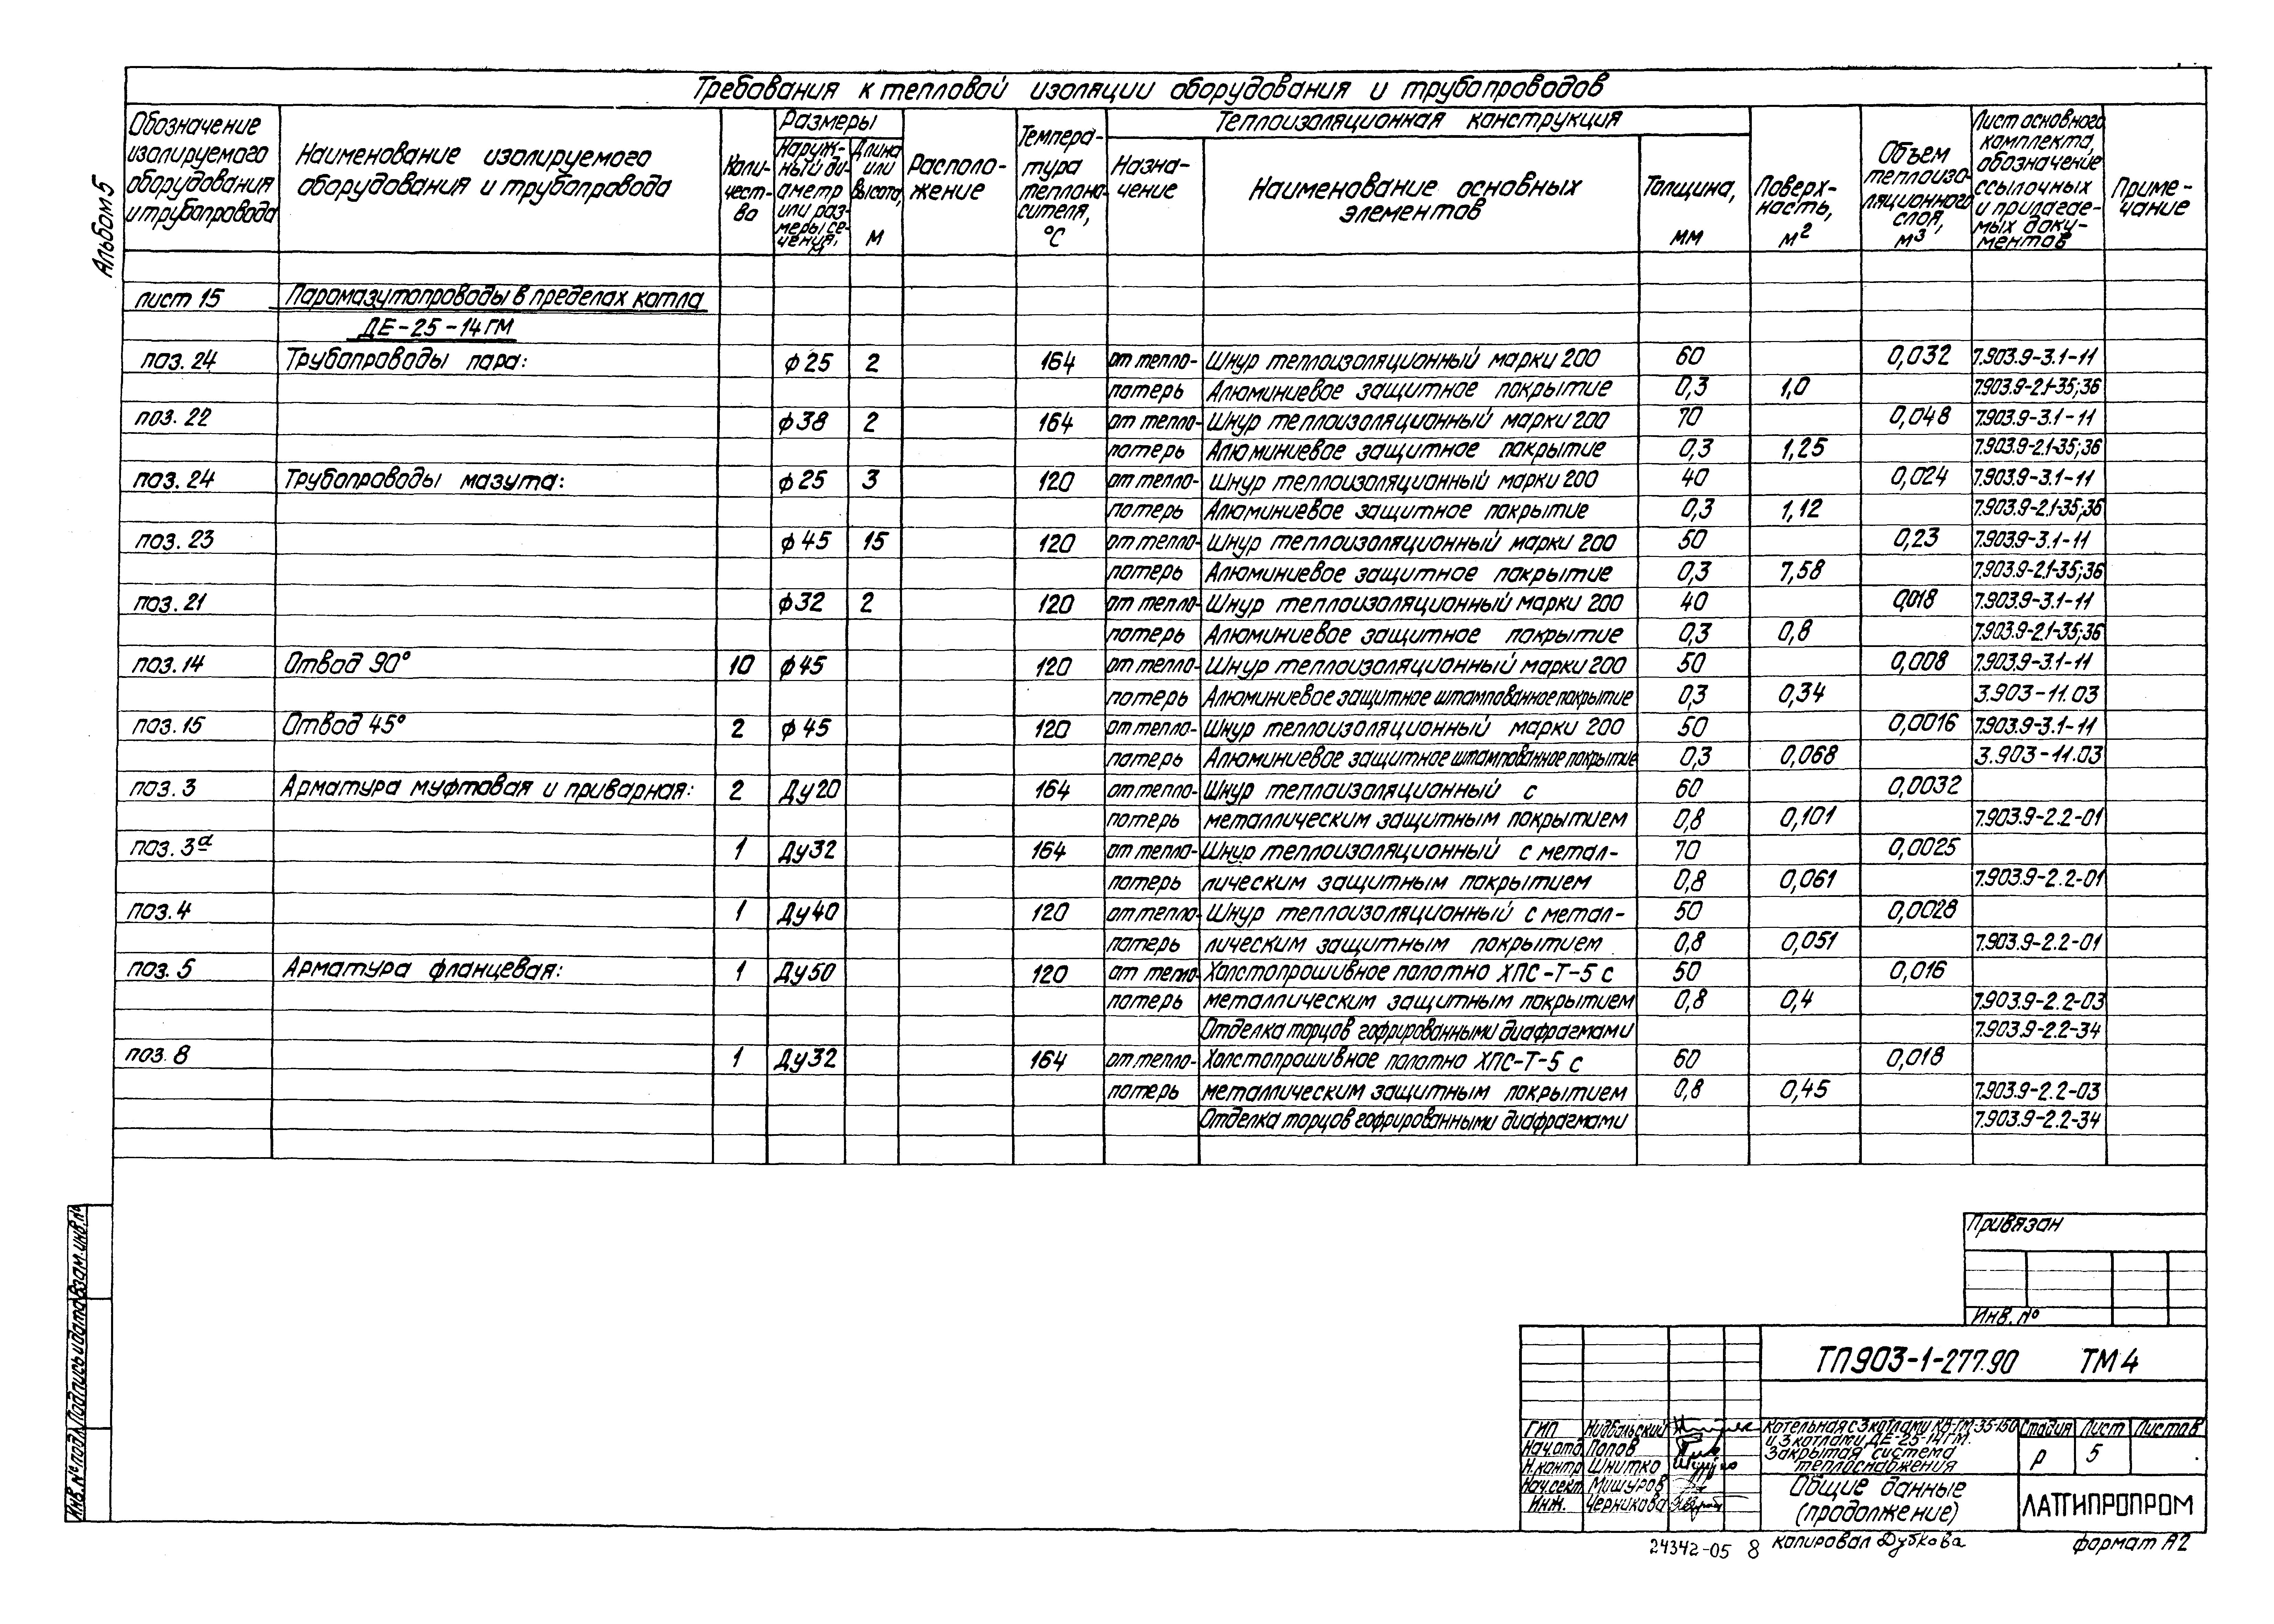 Альбом 5
Требования к тепловой изоляции оборудования и трубопроводов
Обозначение изолируемого оборудования и трубопровода
Наименование изолируемого оборудования и трубопровода
Коли-чест-во
Размеры
Наруж-ный ди-аметр или раз-меры се-чения, м
Длина или высота, м
Располо-жение
Темпера-тура теплоно-сителя, °С
Теплоизоляционная конструкция
Назна-чение
Наименование основных элементов
Толщина, мм
Поверх-ность, м²
Объем теплоизо-ляционного слоя, м³
Лист основного комплекта, обозначение ссылочных и прилагае-мых доку-ментов
Приме-чание
лист 15 Паромазутопроводы в пределах котла
ДЕ-25-14ГМ
поз. 24 Трубопроводы пара: ф25 2 164 от тепло- Шнур теплоизоляционный марки 200 60 0,032 7.903.9-3.1-11
потерь Алюминиевое защитное покрытие 0,3 1,0 7.903.9-2.1-35;36
поз. 22 ф38 2 164 от тепло- Шнур теплоизоляционный марки 200 70 0,048 7.903.9-3.1-11
потерь Алюминиевое защитное покрытие 0,3 1,25 7.903.9-2.1-35;36
поз. 24 Трубопроводы мазута: ф25 3 120 от тепло- Шнур теплоизоляционный марки 200 40 0,024 7.903.9-3.1-11
потерь Алюминиевое защитное покрытие 0,3 1,12 7.903.9-2.1-35;36
поз. 23 ф45 15 120 от тепло- Шнур теплоизоляционный марки 200 50 0,23 7.903.9-3.1-11
потерь Алюминиевое защитное покрытие 0,3 7,58 7.903.9-2.1-35;36
поз. 21 ф32 2 120 от тепло- Шнур теплоизоляционный марки 200 40 0,018 7.903.9-3.1-11
потерь Алюминиевое защитное покрытие 0,3 0,8 7.903.9-2.1-35;36
поз. 14 Отвод 90° 10 ф45 120 от тепло- Шнур теплоизоляционный марки 200 50 0,008 7.903.9-3.1-11
потерь Алюминиевое защитное штампованное покрытие 0,3 0,34 3.903-11.03
поз. 15 Отвод 45° 2 ф45 120 от тепло- Шнур теплоизоляционный марки 200 50 0,0016 7.903.9-3.1-11
потерь Алюминиевое защитное штампованное покрытие 0,3 0,068 3.903-11.03
поз. 3 Арматура муфтовая и приварная: 2 Ду20 164 от тепло- Шнур теплоизоляционный с 60 0,0032
потерь металлическим защитным покрытием 0,8 0,101 7.903.9-2.2-01
поз. 3а 1 Ду32 164 от тепло- Шнур теплоизоляционный с метал- 70 0,0025
потерь лическим защитным покрытием 0,8 0,061 7.903.9-2.2-01
поз. 4 1 Ду40 120 от тепло- Шнур теплоизоляционный с метал- 50 0,0028
потерь лическим защитным покрытием 0,8 0,051 7.903.9-2.2-01
поз. 5 Арматура фланцевая: 1 Ду50 120 от тепло- Холстопрошивное полотно ХПС-Т-5 с 50 0,016
потерь металлическим защитным покрытием 0,8 0,4 7.903.9-2.2-03
Отделка торцов гофрированными диафрагмами 7.903.9-2.2-34
поз. 8 1 Ду32 164 от тепло- Холстопрошивное полотно ХПС-Т-5 с 60 0,018
потерь металлическим защитным покрытием 0,8 0,45 7.903.9-2.2-03
Отделка торцов гофрированными диафрагмами 7.903.9-2.2-34
Инв. № подл. Подпись и дата Взам. инв. №
Привязан
Инв. №
ТП903-1-277.90 ТМ4
ГИП Нидбальский
Нач.отд Попов
Н.контр Шнитко
Нач.сект Мишуров
Инж. Черникова
Котельная с 3 котлами КВ-ГМ-35-150
и 3 котлами ДЕ-25-14ГМ.
Закрытая система
теплоснабжения
Стадия Лист Листов
Р 5
Общие данные
(продолжение)
ЛАТГИПРОПРОМ
24342-05 8 копировал Дубкова формат А2